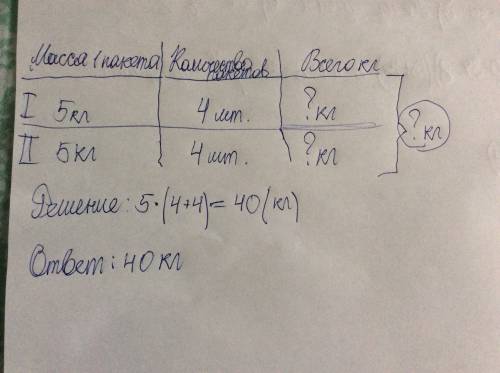 Масса 1 пакета Количество пакетов Всего кг
I 5 кг 4 шт. ? кг
II 5 кг 4 шт. ? кг
? кг
Решение: 5·(4+4)=40(кг)
Ответ: 40 кг